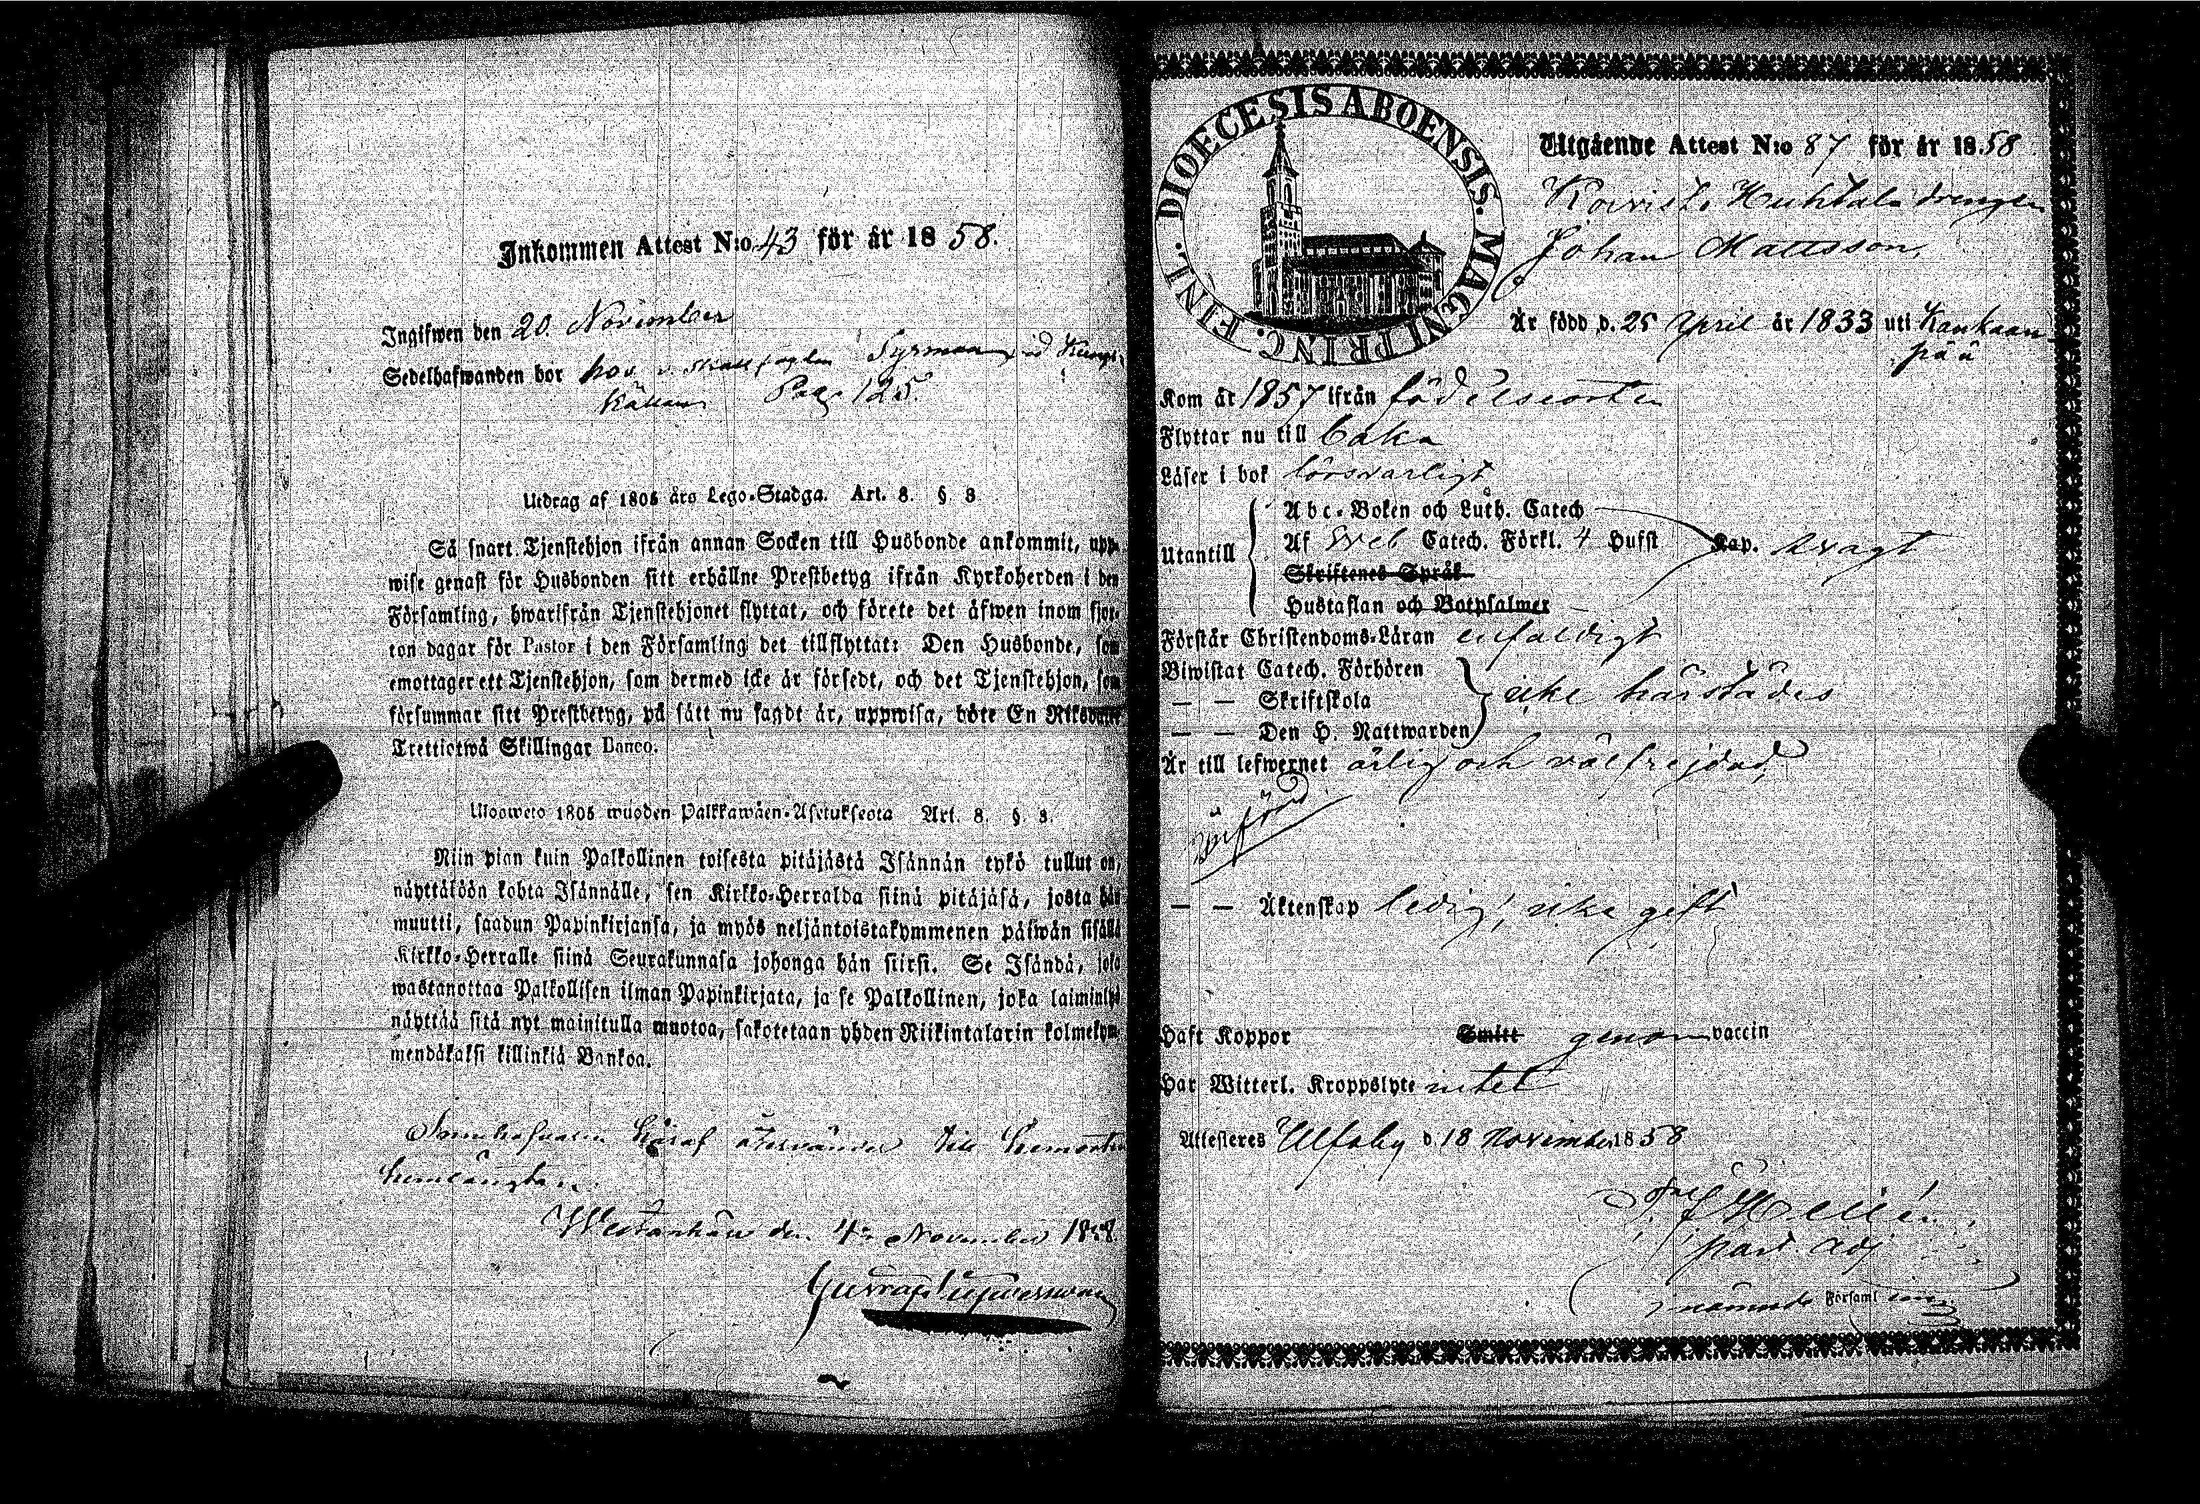 Inkommen Attest N:o 43 för år 1858.
Ingifwen den 20 November
Sedelhafwanden bor hos
Pag. 125.
Utdrag af 1805 års Lego-Stadga. Art. 8. § 3
Så snart Tjenstehjon ifrån annan Socken till Husbonde ankommit, upp-
wise genast för Husbonden sitt erhållne Prestbetyg ifrån Kyrkoherden i den
Församling, hwarifrån Tjenstehjonet flyttat, och förete det äfwen inom fjor-
ton dagar för Pastor i den Församling det tillflyttat: Den Husbonde, som
emottager ett Tjenstehjon, som dermed icke är försedt, och det Tjenstehjon, som
försummar sitt Prestbetyg, på sätt nu sagdt är, uppwisa, böte En Riksdaler
Trettiotwå Skillingar Banco.
Ulosweto 1805 wuoden Palkkawäen-Asetuksesta Art. 8. §. 3.
Niin pian kuin Palkollinen toisesta pitäjästä Isännän tykö tullut on,
näyttäköön kohta Isännälle, sen Kirkko-Herralda siinä pitäjäsä, josta hän
muutti, saadun Papinkirjansa, ja myös neljäntoistakymmenen päiwän sisällä
Kirkko-Herralle siinä Seurakunnasa johonga hän siirsi. Se Isändä, joka
wastanottaa Palkollisen ilman Papinkirjata, ja se Palkollinen, joka laiminlyö
näyttää sitä nyt mainitulla muotoa, sakotetaan yhden Riikintalarin kolmekym-
mendäkaksi killinkiä Bankoa.
till hemorten
den 4 November 1858
DIOECESIS ABOENSIS. MAGNI PRINC. FINL.
Utgående Attest N:o 87 för år 1858
Koivisto Huhtala drengen
Johan Mattsson,
Är född d. 25 April år 1833 uti Kankaan-
pää
Kom år 1857 ifrån födelseorten
Flyttar nu till
Läser i bok försvarligt
Utantill
Abc-Boken och Luth. Catech
Af Sveb Catech. Förkl. 4 Hufst
Kap. svagt
Skriftenes Språk
Hustaflan och Botpsalmer
Förstår Christendoms-Läran enfaldigt
Biwistat Catech. Förhören
— — Skriftskola
icke härstädes
— — Den H. Nattwarden
Är till lefwernet ärlig och välfrejdad,
Införd
— — Äktenskap ledig, icke gift
Haft Koppor Smitt genom vaccin
Har Witterl. Kroppslyte intet
Attesteres Ulfsby d. 18 November 1858
past. adj
i nämnde Församl